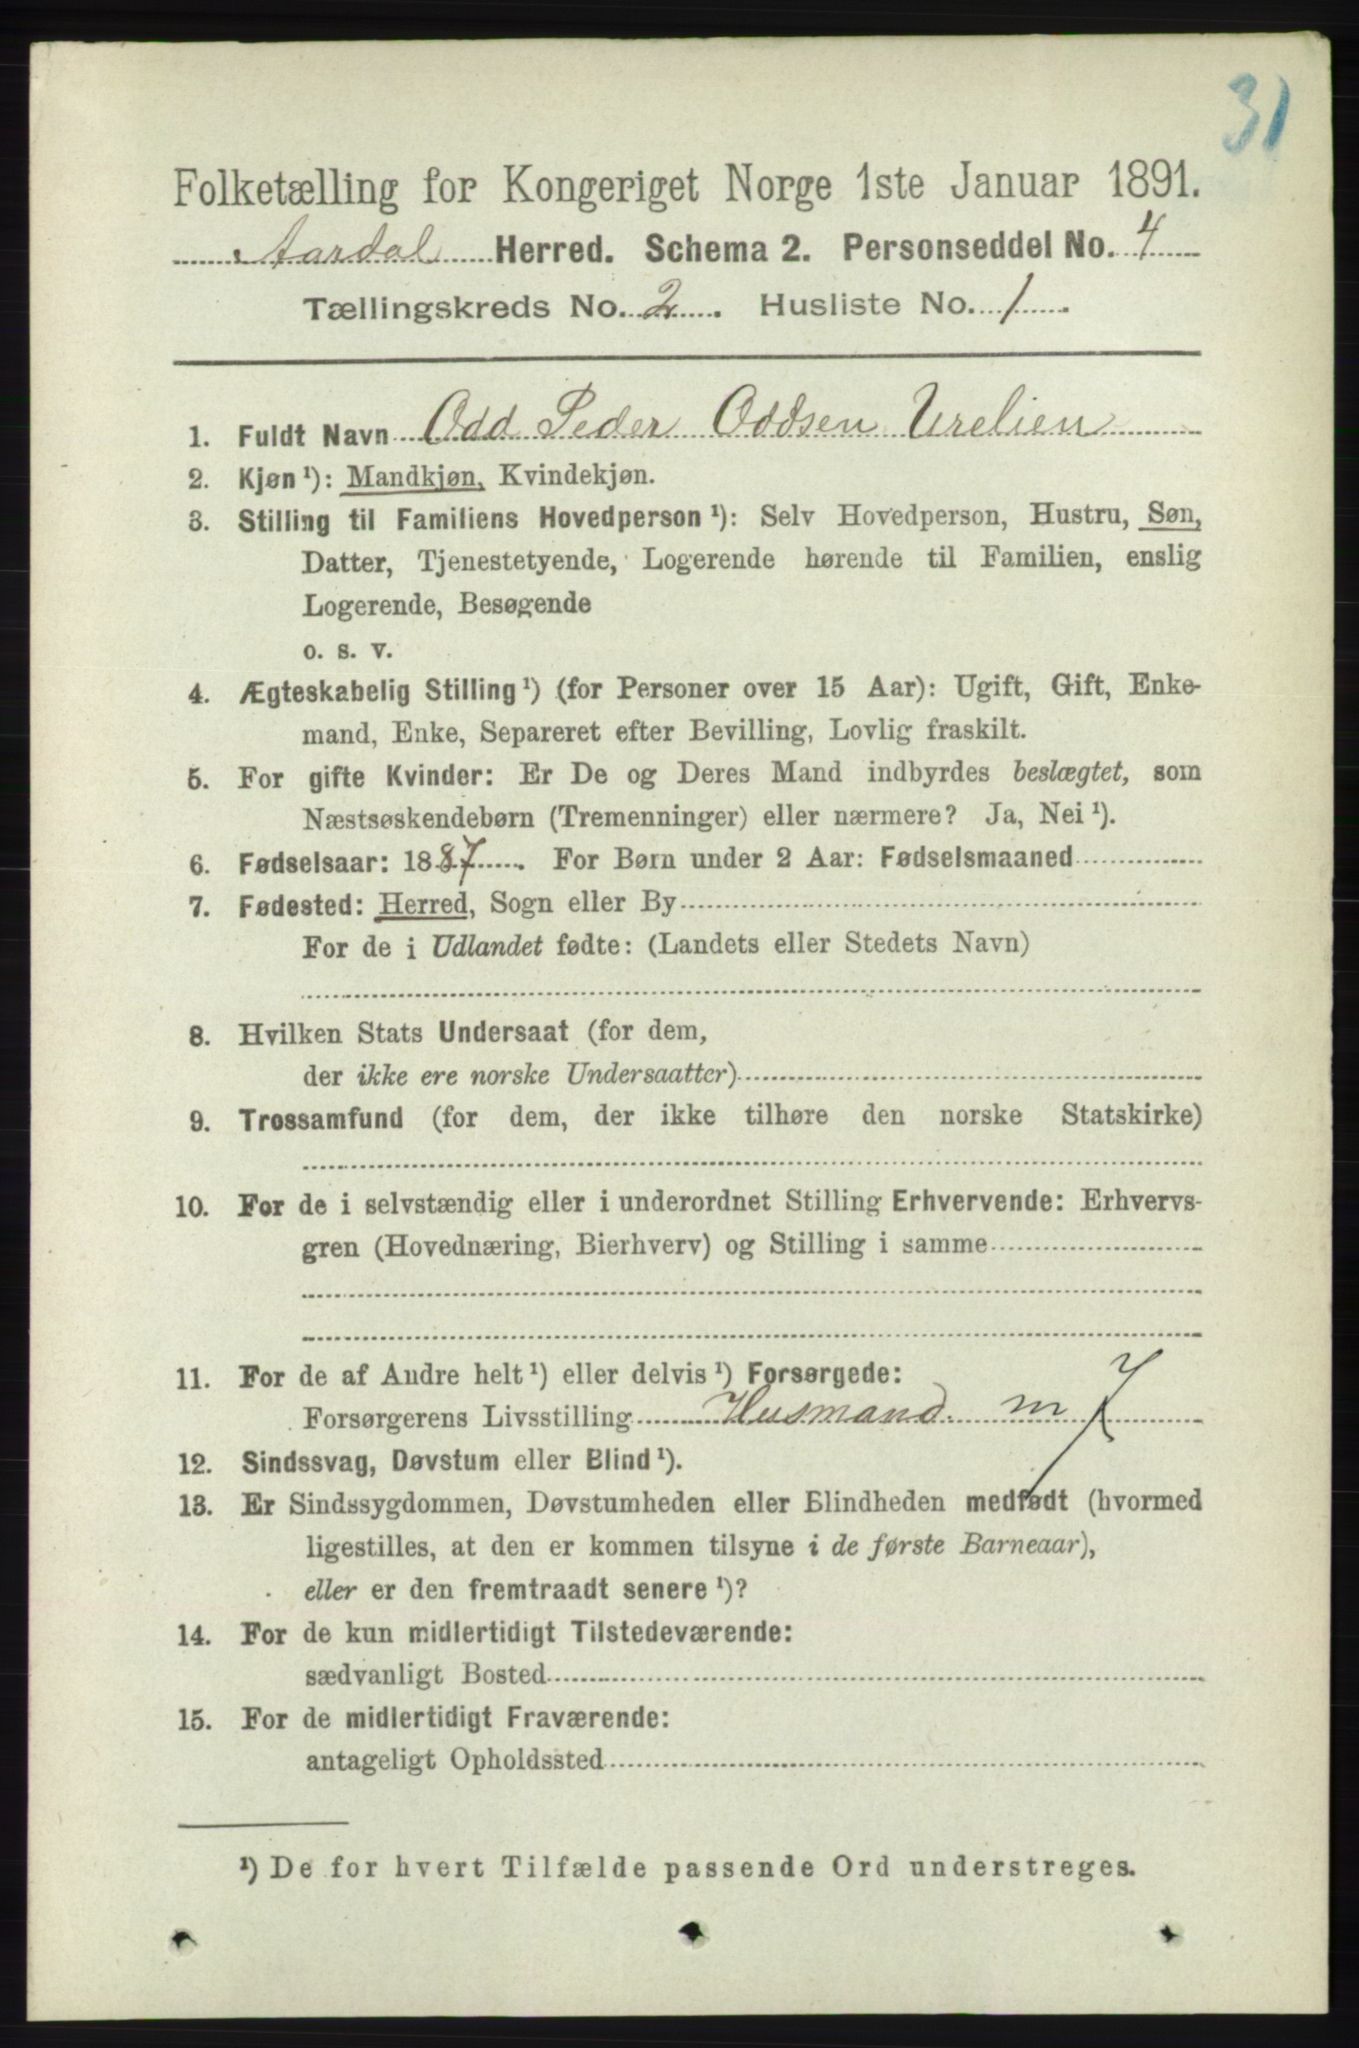 31
Folketælling for Kongeriget Norge 1ste Januar 1891.
Aardal Herred. Schema 2. Personseddel No. 4
Tællingskreds No. 2. Husliste No. 1.
1. Fuldt Navn Odd Peder Oddsen Urelien
2. Kjøn ¹): Mandkjøn, Kvindekjøn.
3. Stilling til Familiens Hovedperson ¹): Selv Hovedperson, Hustru, Søn,
Datter, Tjenestetyende, Logerende hørende til Familien, enslig
Logerende, Besøgende
o. s. v.
4. Ægteskabelig Stilling ¹) (for Personer over 15 Aar): Ugift, Gift, Enke-
mand, Enke, Separeret efter Bevilling, Lovlig fraskilt.
5. For gifte Kvinder: Er De og Deres Mand indbyrdes beslægtet, som
Næstsøskendebørn (Tremenninger) eller nærmere? Ja, Nei ¹).
6. Fødselsaar: 1887. For Børn under 2 Aar: Fødselsmaaned
7. Fødested: Herred, Sogn eller By
For de i Udlandet fødte: (Landets eller Stedets Navn)
8. Hvilken Stats Undersaat (for dem,
der ikke ere norske Undersaatter)
9. Trossamfund (for dem, der ikke tilhøre den norske Statskirke)
10. For de i selvstændig eller i underordnet Stilling Erhvervende: Erhvervs-
gren (Hovednæring, Bierhverv) og Stilling i samme
11. For de af Andre helt ¹) eller delvis ¹) Forsørgede:
Forsørgerens Livsstilling Husmand m
12. Sindssvag, Døvstum eller Blind ¹).
13. Er Sindssygdommen, Døvstumheden eller Blindheden medfødt (hvormed
ligestilles, at den er kommen tilsyne i de første Barneaar),
eller er den fremtraadt senere ¹)?
14. For de kun midlertidigt Tilstedeværende:
sædvanligt Bosted
15. For de midlertidigt Fraværende:
antageligt Opholdssted
¹) De for hvert Tilfælde passende Ord understreges.